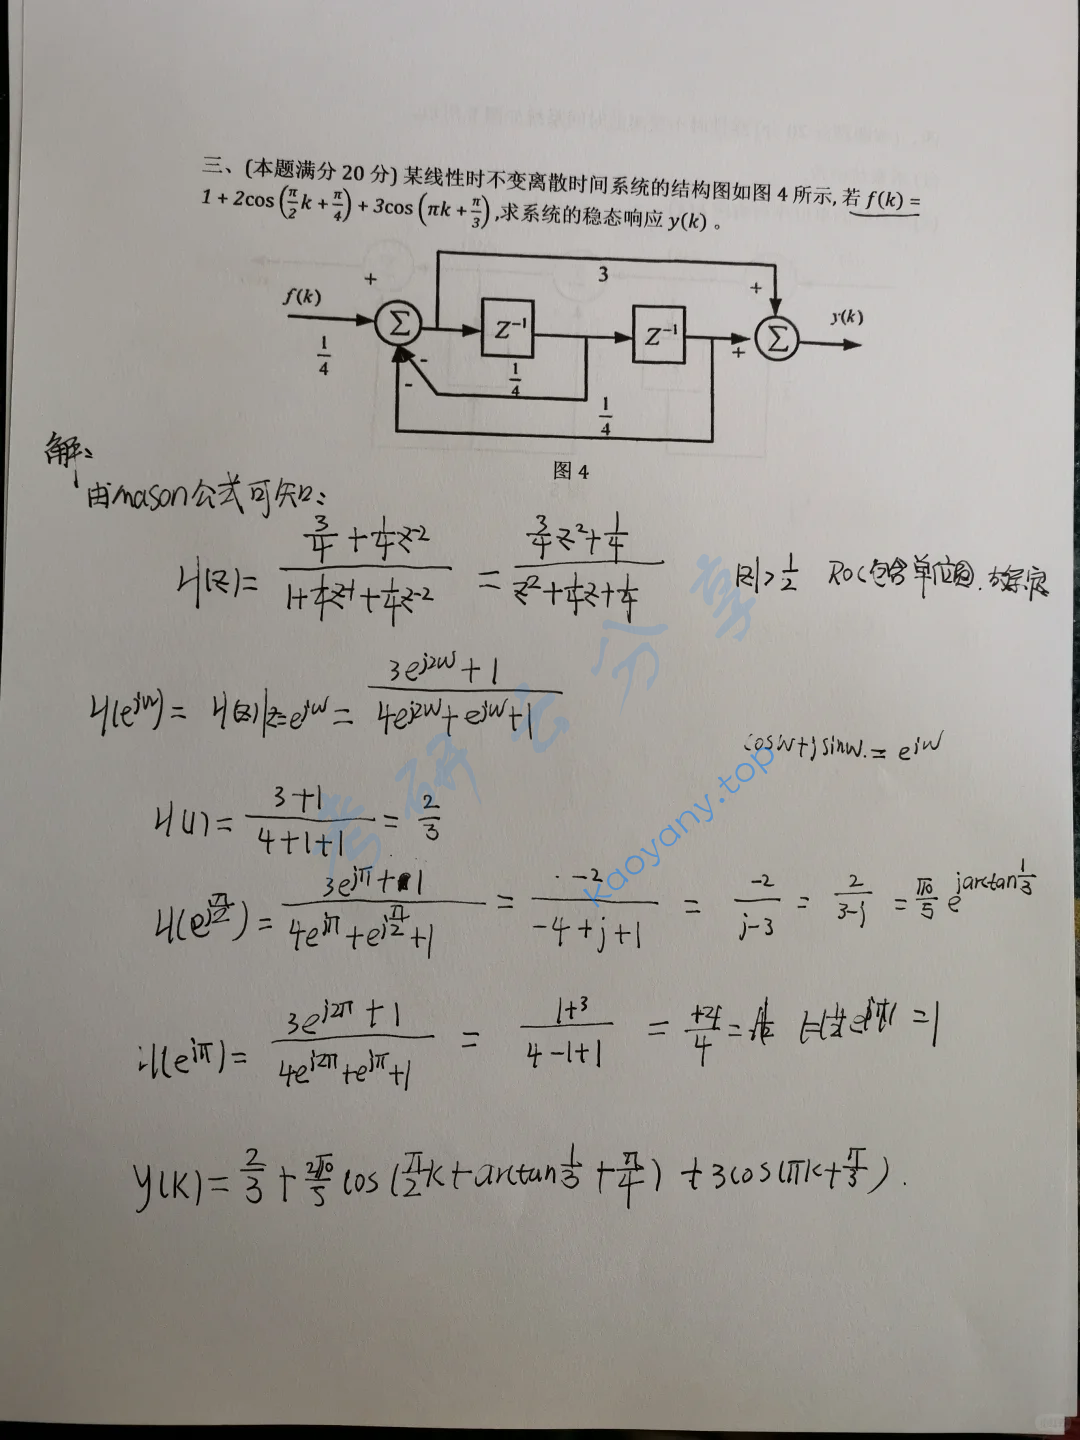 三、(本题满分 20 分) 某线性时不变离散时间系统的结构图如图 4 所示, 若 f(k) =
1 + 2cos(π/2 k + π/4) + 3cos(πk + π/3), 求系统的稳态响应 y(k) 。
3
+
+
f(k)
Σ
Z⁻¹
Z⁻¹
Σ
y(k)
+
1/4
-
1/4
-
1/4
图 4
解:
由mason公式可知:
H(z) = (3/4 + 1/4 z⁻²)/(1 + 1/4 z⁻¹ + 1/4 z⁻²) = (3/4 z² + 1/4)/(z² + 1/4 z + 1/4) |z| > 1/2 ROC包含单位圆, 故稳定
H(e^{jω}) = H(z)|z=e^{jω} = (3e^{j2ω} + 1)/(4e^{j2ω} + e^{jω} + 1)
cosω + jsinω. = e^{jω}
H(1) = (3+1)/(4+1+1) = 2/3
H(e^{jπ/2}) = (3e^{jπ} + 1)/(4e^{jπ} + e^{jπ/2} + 1) = -2/(-4+j+1) = -2/(j-3) = 2/(3-j) = √10/5 e^{jarctan 1/3}
H(e^{jπ}) = (3e^{j2π} + 1)/(4e^{j2π} + e^{jπ} + 1) = (1+3)/(4-1+1) = = 1
y(k) = 2/3 + 2√10/5 cos(π/2 k + arctan 1/3 + π/4) + 3cos(πk + π/3).
考研云分享
kaoyany.top